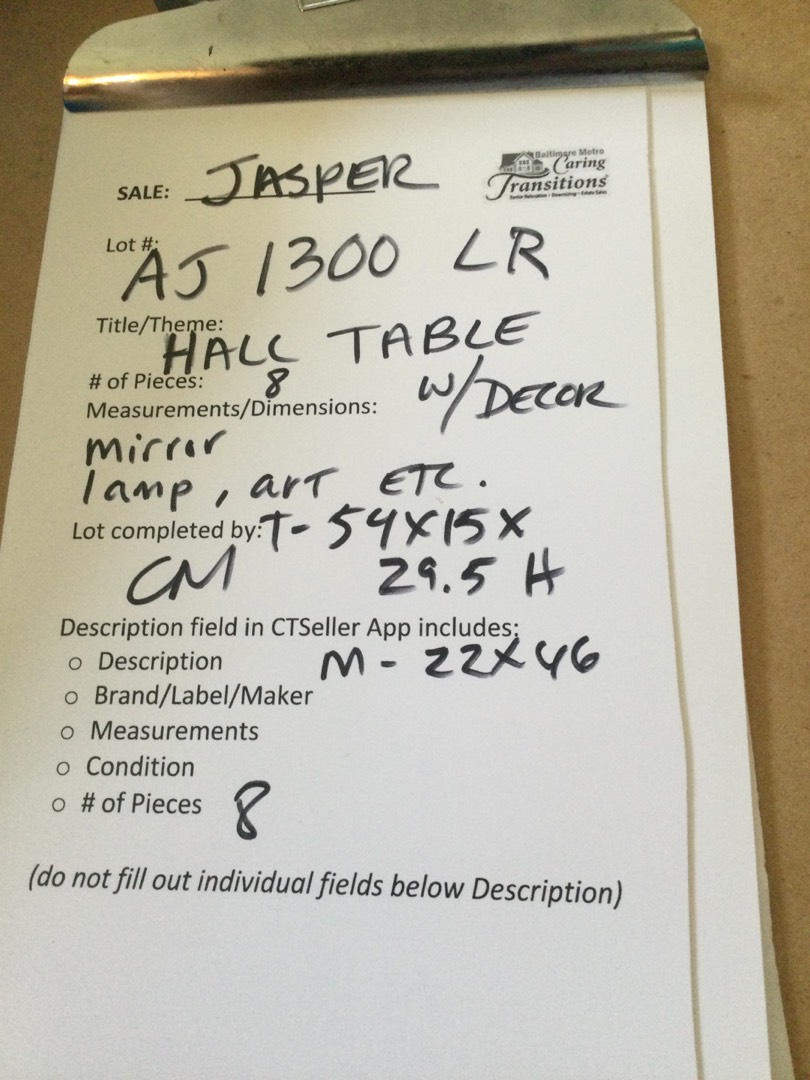 SALE: JASPER
Baltimore Metro
Caring
Transitions
Senior Relocation • Downsizing • Estate Sales
Lot #:
AJ 1300 LR
Title/Theme:
HALL TABLE
# of Pieces: 8 W/DECOR
Measurements/Dimensions:
mirror
lamp, art ETC.
Lot completed by: T- 54X15X
CM 29.5 H
Description field in CTSeller App includes:
○ Description M- 22X46
○ Brand/Label/Maker
○ Measurements
○ Condition
○ # of Pieces 8
(do not fill out individual fields below Description)